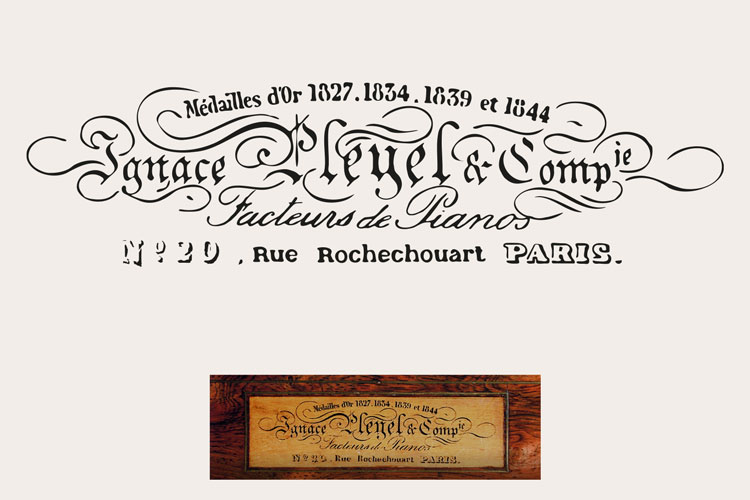 Médailles d'Or 1827. 1834. 1839 et 1844
Ignace Pleyel & Comp^ie
Facteurs de Pianos
Nº 20 , Rue Rochechouart PARIS.
Médailles d'Or 1827. 1834. 1839 et 1844
Ignace Pleyel & Comp^ie
Facteurs de Pianos
Nº 20. Rue Rochechouart PARIS.